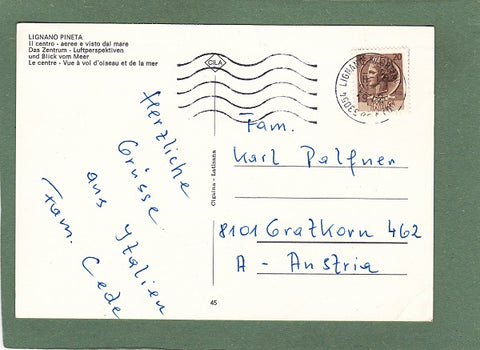 LIGNANO PINETA
Il centro - aeree e visto dal mare
Das Zentrum - Luftperspektiven
und Blick vom Meer
Le centre - Vue à vol d'oiseau et de la mer
CILA
20
Herzliche
Grüsse
aus Ytalien
Fam. Cede
Fam.
Karl Palfner
8101 Gratkorn 462
A - Austria
45